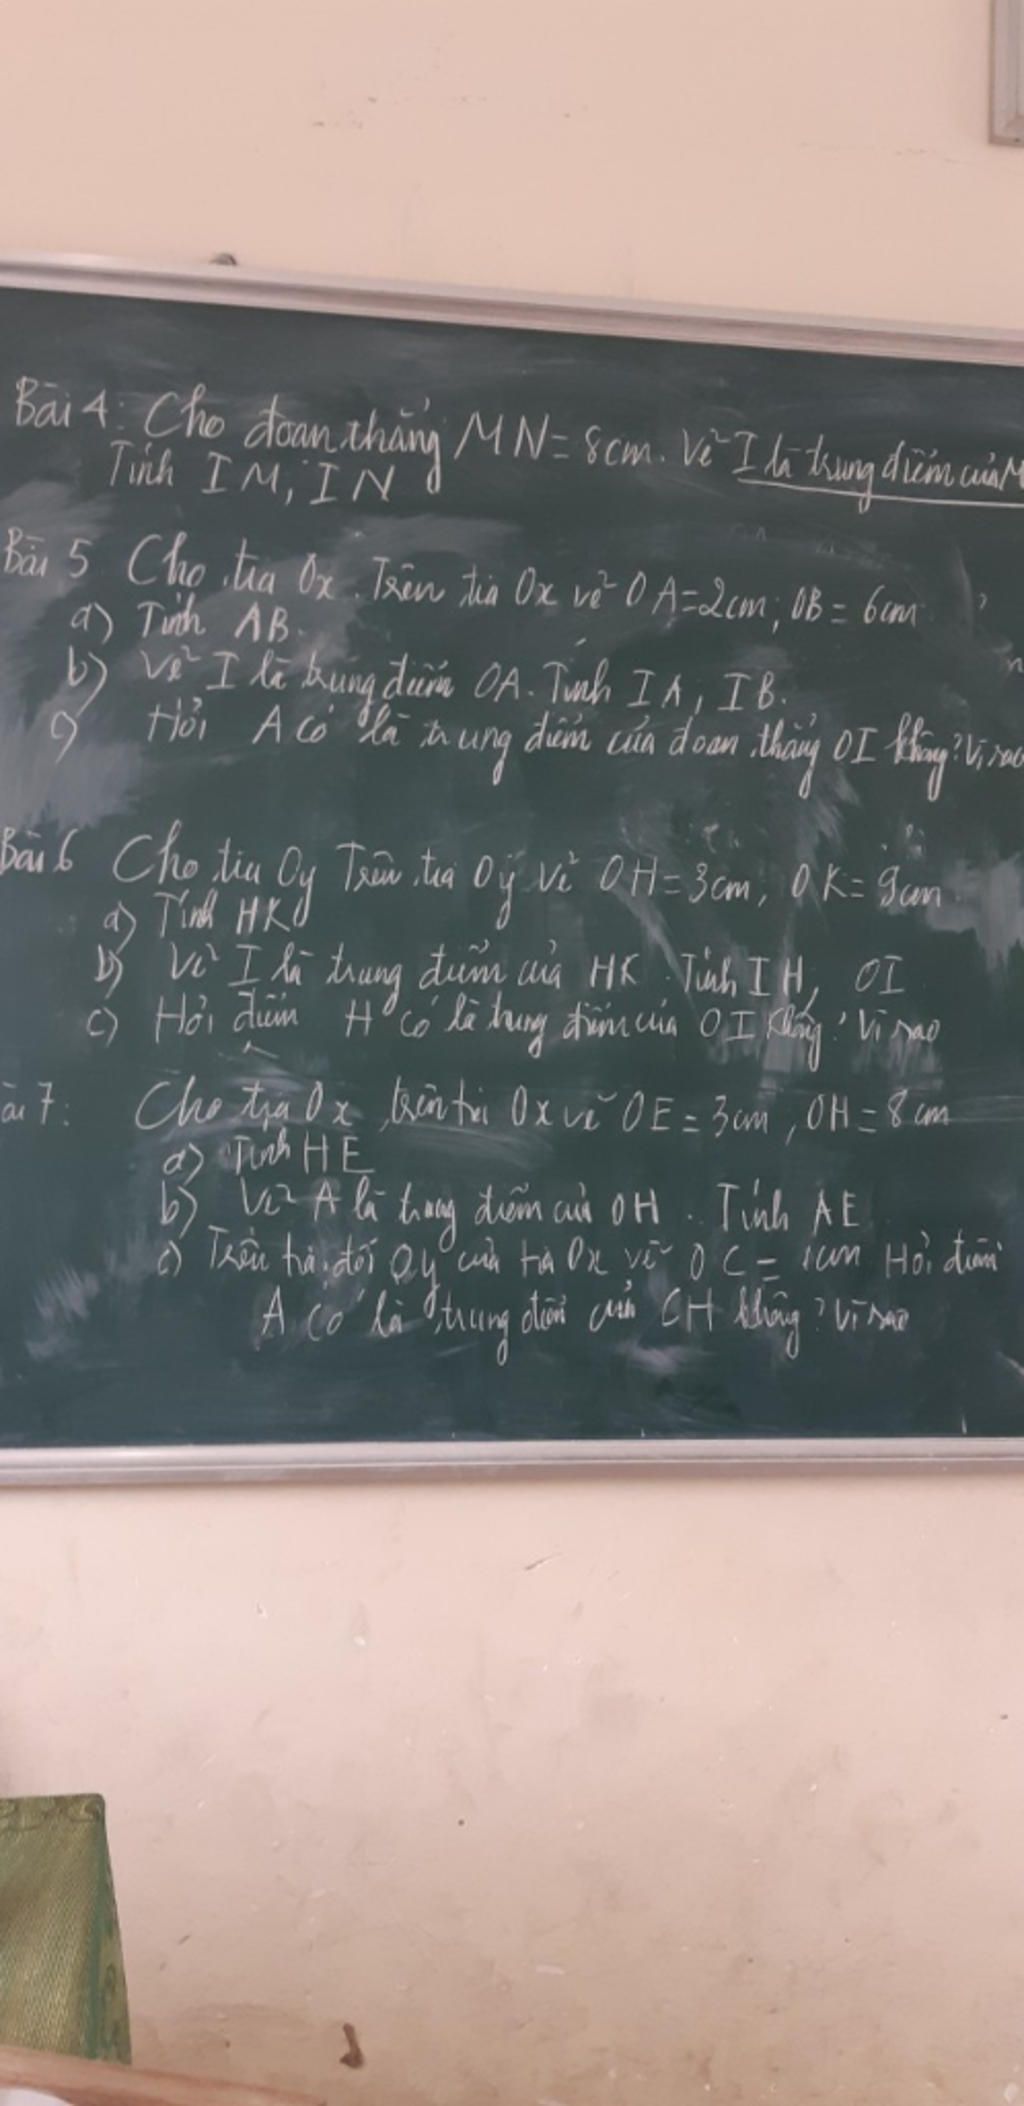 Bài 4: Cho đoạn thẳng MN = 8cm. Vẽ I là trung điểm của M
Tính IM, IN
Bài 5 Cho tia Ox. Trên tia Ox vẽ OA = 2cm; OB = 6cm
a) Tính AB.
b) Vẽ I là trung điểm OA. Tính IA, IB.
c) Hỏi A có là trung điểm của đoạn thẳng OI không? Vì sao
Bài 6 Cho tia Oy Trên tia Oy vẽ OH = 3cm, OK = 9cm
a) Tính HK
b) Vẽ I là trung điểm của HK. Tính IH, OI
c) Hỏi điểm H có là trung điểm của OI không? Vì sao
ài 7: Cho tia Ox, trên tia Ox vẽ OE = 3cm, OH = 8cm
a) Tính HE
b) Vẽ A là trung điểm của OH. Tính AE
c) Trên tia đối Oy của tia Ox vẽ OC = 1cm Hỏi điểm
A có là trung điểm của CH không? Vì sao